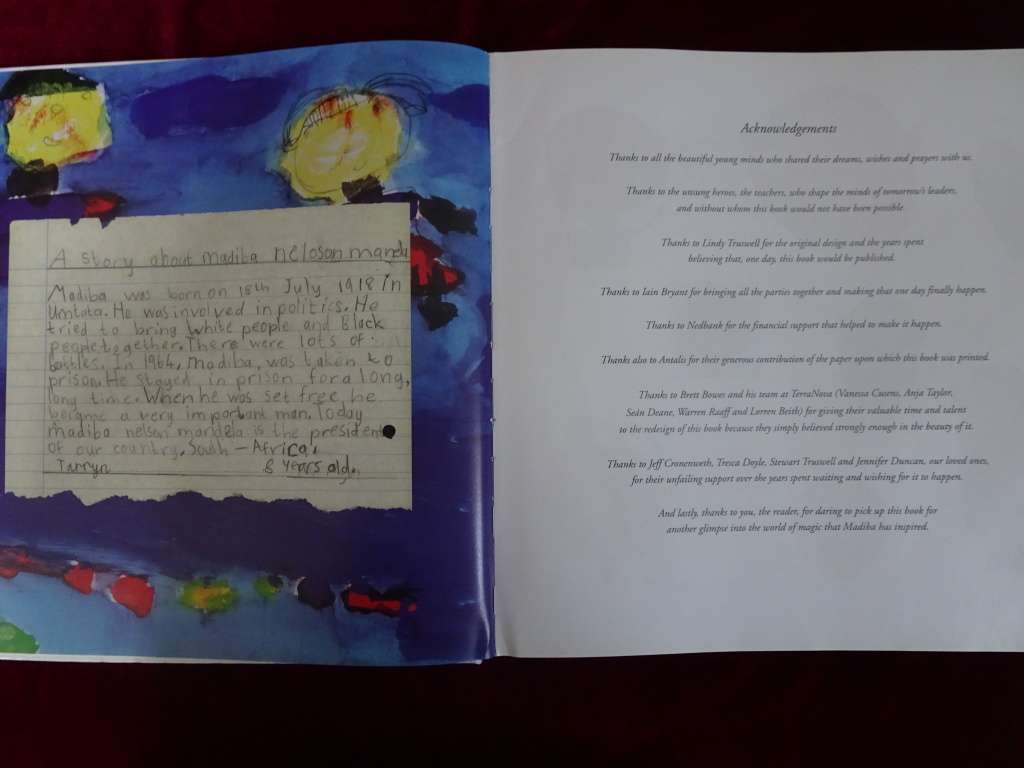 A story about madiba neloson mandela
Madiba was born on 18th July 1918 in
Umtata. He was involved in politics. He
tried to bring white people and Black
people together. There were lots of
battles. In 1964, Madiba, was taken to
prison. He stayed in prison for a long,
long time. When he was set free, he
became a very important man. Today
madiba nelson mandela is the president
of our country. South - Africa.
Tarryn 8 years old.
Acknowledgements
Thanks to all the beautiful young minds who shared their dreams, wishes and prayers with us.
Thanks to the unsung heroes, the teachers, who shape the minds of tomorrow's leaders,
and without whom this book would not have been possible.
Thanks to Lindy Truswell for the original design and the years spent
believing that, one day, this book would be published.
Thanks to Iain Bryant for bringing all the parties together and making that one day finally happen.
Thanks to Nedbank for the financial support that helped to make it happen.
Thanks also to Antalis for their generous contribution of the paper upon which this book was printed.
Thanks to Brett Bowes and his team at TerraNova (Vanessa Cusens, Anja Taylor,
Seán Deane, Warren Raaff and Lorren Beith) for giving their valuable time and talent
to the redesign of this book because they simply believed strongly enough in the beauty of it.
Thanks to Jeff Cronenweth, Tresca Doyle, Stewart Truswell and Jennifer Duncan, our loved ones,
for their unfailing support over the years spent waiting and wishing for it to happen.
And lastly, thanks to you, the reader, for daring to pick up this book for
another glimpse into the world of magic that Madiba has inspired.